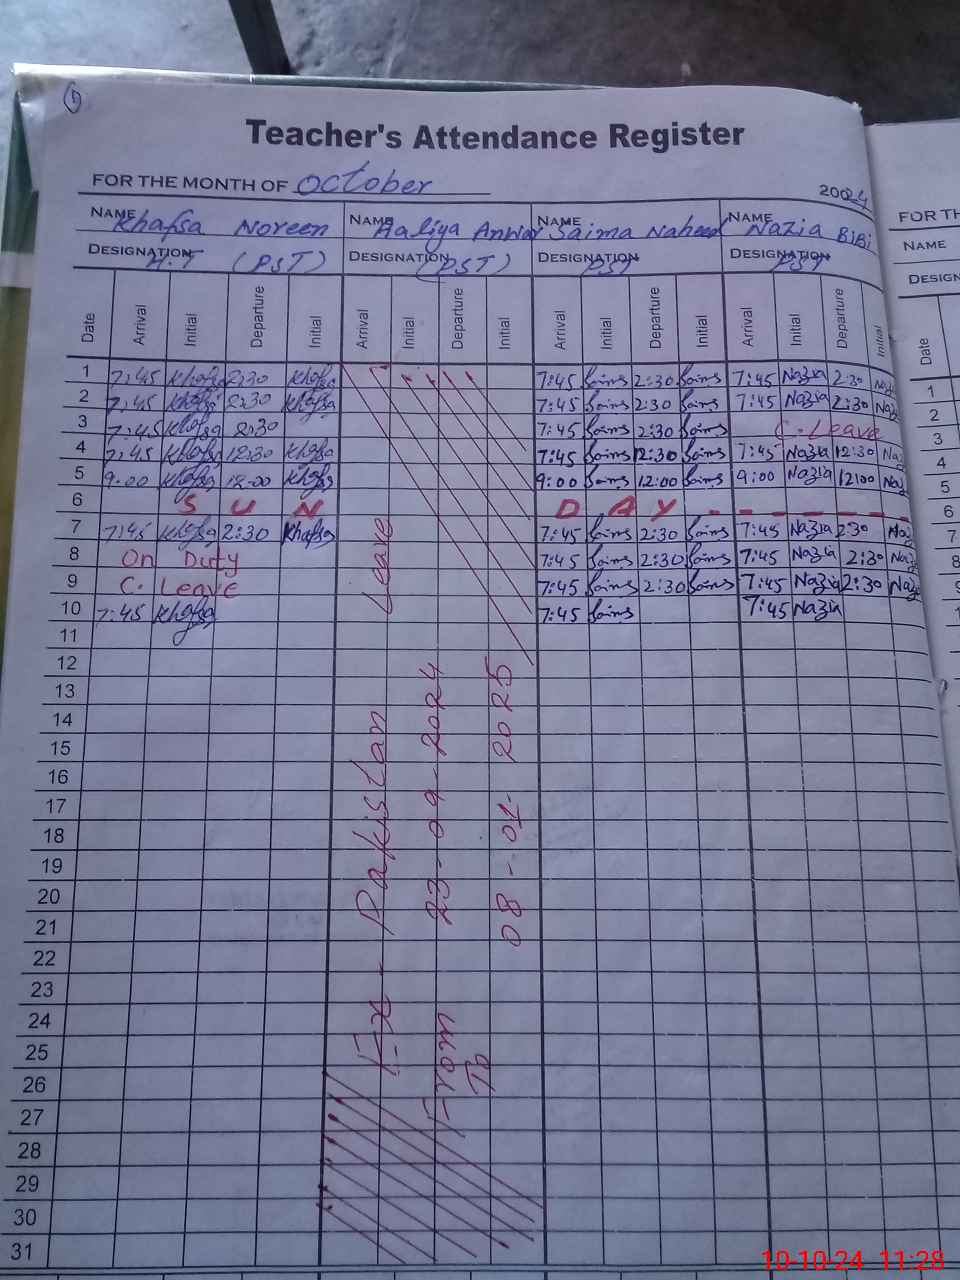 1
Teacher's Attendance Register
FOR THE MONTH OF October 2024
NAME Khafsa Noreen NAME Aaliya Anwar NAME Saima Naheed NAME Nazia BiBi
DESIGNATION H.T (PST) DESIGNATION (PST) DESIGNATION PST DESIGNATION PST
Date Arrival Initial Departure Initial Arrival Initial Departure Initial Arrival Initial Departure Initial Arrival Initial Departure Initial
1 7:45 Khafsa 2:30 Khafsa 7:45 Saima 2:30 Saima 7:45 Nazia 2:30
2 7:45 Khafsa 2:30 Khafsa 7:45 Saima 2:30 Saima 7:45 Nazia 2:30
3 7:45 Khafsa 2:30 7:45 Saima 2:30 Saima C. Leave
4 7:45 Khafsa 12:30 Khafsa 7:45 Saima 12:30 Saima 7:45 Nazia 12:30
5 9:00 Khafsa 12:00 Khafsa 9:00 Saima 12:00 Saima 9:00 Nazia 12:00
6 S U N D A Y - - - - - - -
7 7:45 Khafsa 2:30 Khafsa 7:45 Saima 2:30 Saima 7:45 Nazia 2:30
8 On Duty 7:45 Saima 2:30 Saima 7:45 Nazia 2:30
9 C. Leave 7:45 Saima 2:30 Saima 7:45 Nazia 2:30
10 7:45 Khafsa 7:45 Saima 7:45 Nazia
11
12
13
14
15
16
17
18
19
20
21
22
23
24
25
26
27
28
29
30
31
Ex - Pakistan Leave
From 23-09-2024
To 08-01-2025
FOR TH
NAME
DESIGN
Date
1
2
3
4
5
6
7
8
9
10-10-24 11:28